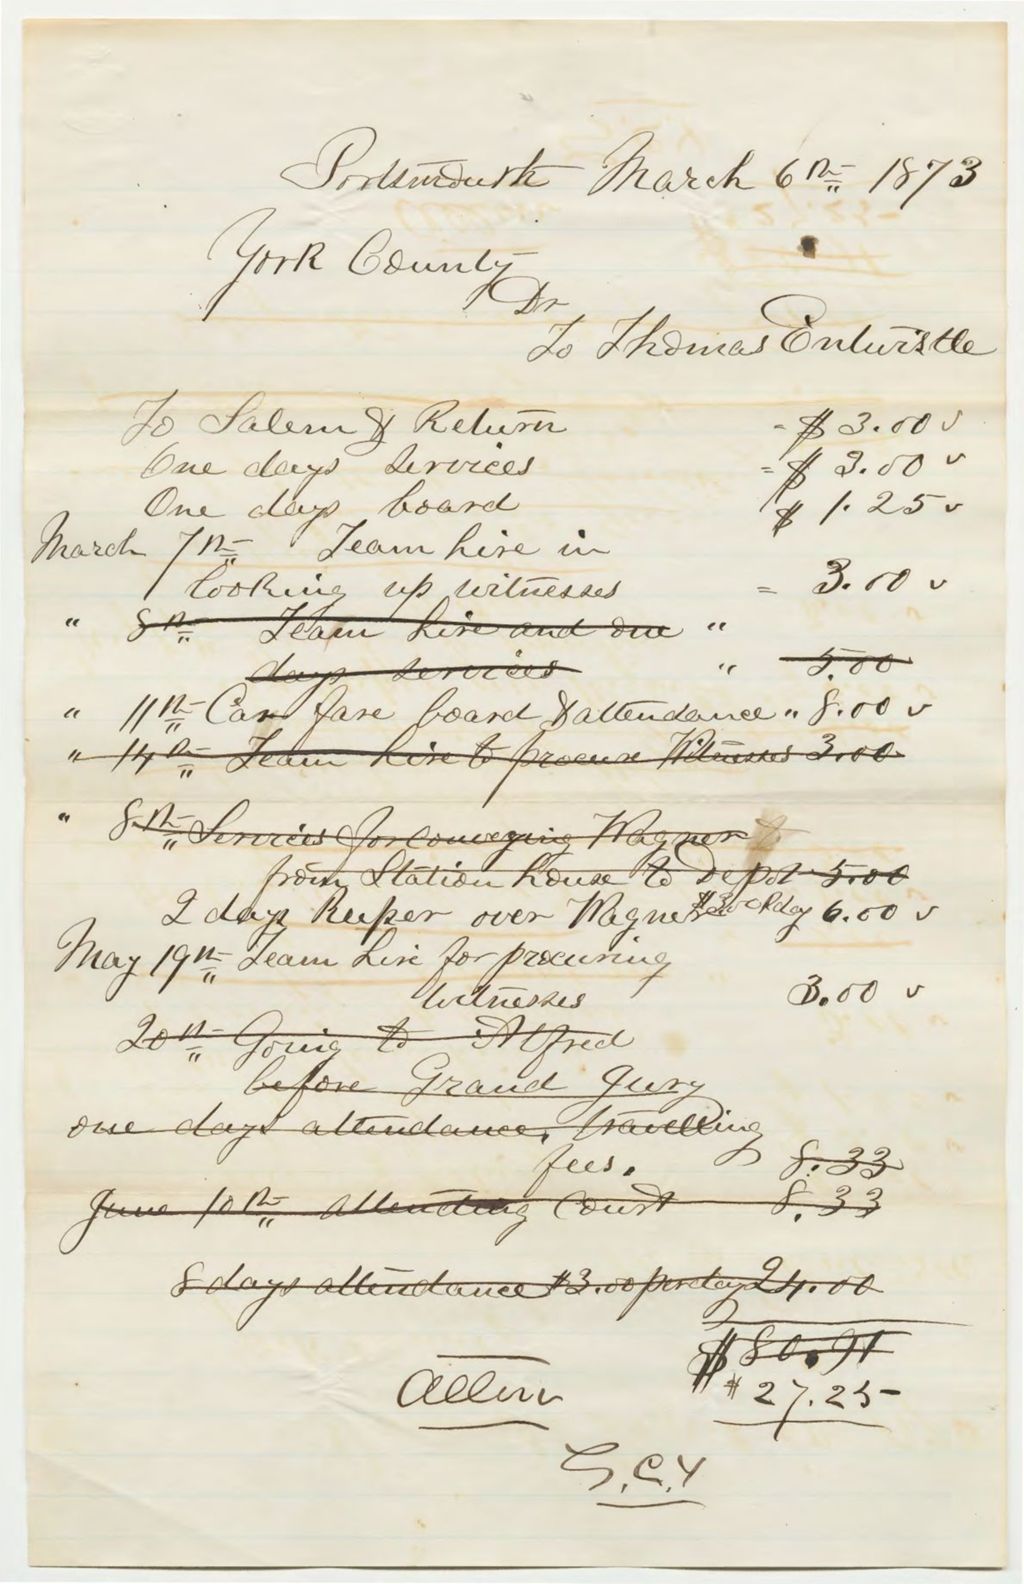 Portsmouth March 6th 1873
York County
Dr
To Thomas Entwistle
To Salem & Return = $ 3.00 v
One days services = $ 3.00 v
One days board $ 1.25 v
March 7th Team hire in
looking up witnesses = 3.00 v
" 8th Team hire and one "
days services " 5.00
" 11th Car fare board & attendance " 8.00 v
" 14th Team hire to procure Witnesses 3.00
" 8th Services for conveying Wagner
from Station house to Depot 5.00
2 days Keeper over Wagner $3.00 P day 6.00 v
May 19th Team hire for procuring
witnesses 3.00 v
20th Going to Alfred
before Grand Jury
one days attendance, travelling
fees. 8.33
June 10th attending Court 8.33
8 days attendance $3.00 per day 24.00
$ 80.91
Allow $ 27.25
G.C.Y